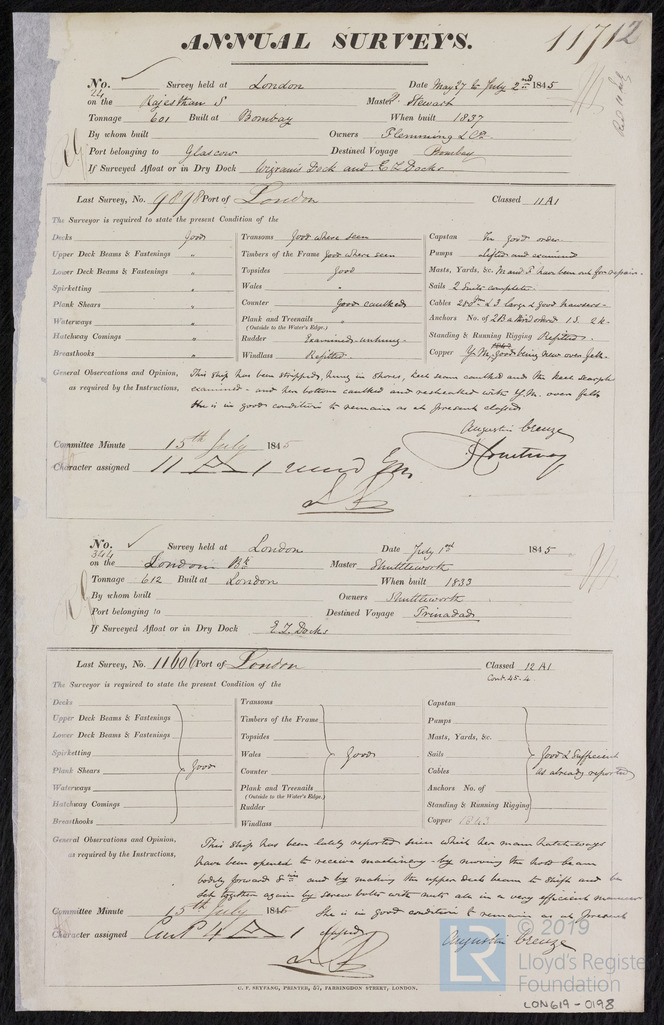 ANNUAL SURVEYS.
11712
No. 24 Survey held at London Date May 27 to July 2nd 1845
on the Rajesthan S Master Stewart
Tonnage 601 Built at Bombay When built 1837
By whom built Owners Flemming & Co.
Port belonging to Glascow Destined Voyage Bombay
If Surveyed Afloat or in Dry Dock Wigrams Dock and E I Docks
Last Survey, No. 9898 Port of London Classed 11 A1
The Surveyor is required to state the present Condition of the
Decks Good
Upper Deck Beams & Fastenings "
Lower Deck Beams & Fastenings "
Spirketting "
Plank Shears "
Waterways "
Hatchway Comings "
Breasthooks "
Transoms Good where seen
Timbers of the Frame Good where seen
Topsides Good
Wales "
Counter Good caulked
Plank and Treenails
(Outside to the Water's Edge.)
Rudder Examined unhung
Windlass Refitted
Capstan In good order
Pumps Lifted and examined
Masts, Yards, &c. M and F have been out for repair
Sails 2 Suits complete
Cables & 3 large & good Hawsers
Anchors No. of 2B a third ordered 1S. 2K.
Standing & Running Rigging Refitted
Copper Y.M. good being new over felt
General Observations and Opinion,
as required by the Instructions,
This ship has been stripped, hung in shores, keel seams caulked and the keel scarphs
examined - and her bottom caulked and resheathed with Y.M. over felt
She is in good condition to remain as at present classed
Augustin Creuze
J Courtney
Committee Minute 15th July 1845
Character assigned 11 A 1
No. 344 Survey held at London Date July 1st 1845
on the London Bk Master Shuttleworth
Tonnage 612 Built at London When built 1833
By whom built Owners Shuttleworth
Port belonging to Destined Voyage Trinadad
If Surveyed Afloat or in Dry Dock E I Docks
Last Survey, No. 11606 Port of London Classed 12 A1
Cont. 45-4
The Surveyor is required to state the present Condition of the
Decks
Upper Deck Beams & Fastenings
Lower Deck Beams & Fastenings
Spirketting
Plank Shears Good
Waterways
Hatchway Comings
Breasthooks
Transoms
Timbers of the Frame
Topsides
Wales Good
Counter
Plank and Treenails
(Outside to the Water's Edge.)
Rudder
Windlass
Capstan
Pumps
Masts, Yards, &c.
Sails Good & Sufficient
Cables as already reported
Anchors No. of
Standing & Running Rigging
Copper 1843
General Observations and Opinion,
as required by the Instructions,
This ship has been lately reported since which her main hatch-ways
have been opened to receive machinery - by moving the hold beam
bodily forward 8 in and by making the upper deck beam to ship and be
set together again by screw bolts with nuts all in a very efficient manner
She is in good condition to remain as at present
classed
Augustin Creuze
Committee Minute 15th July 1845
Character assigned Cont 4 A 1
G. F. SEYFANG, PRINTER, 57, FARRINGDON STREET, LONDON.
LR
© 2019
Lloyd's Register
Foundation
LON619-0198